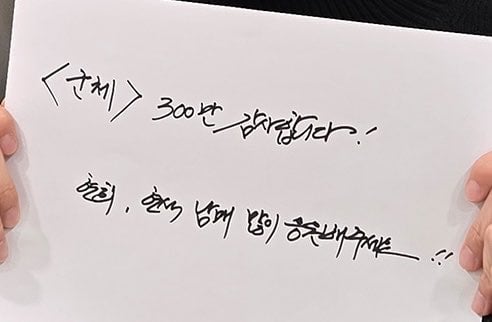 <군체> 300만 감사합니다!
현희, 현석 남매 많이 응원해주세요!!